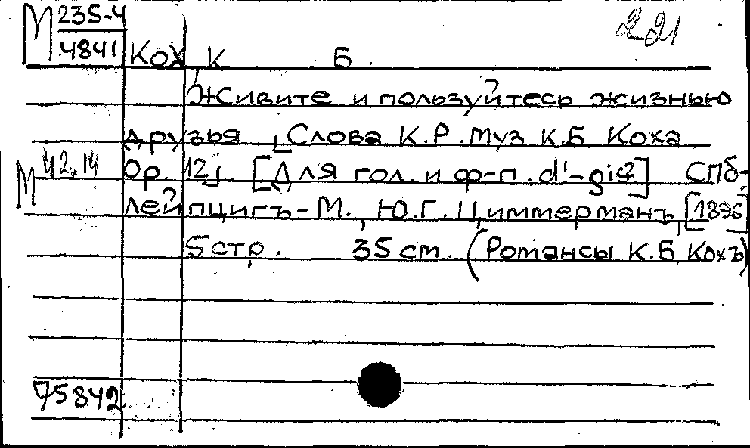 М 235-4
4841
221
Кох, К Б
Живите и пользуйтесь жизнью
друзья [Слова К.Р. Муз К.Б Коха
М 42.14 Ор. 12]. [Для гол. и ф-п. d'-gis2] СПб-
Лейпцигъ-М., Ю.Г. Циммерманъ, [1896]
5 стр. 35 cm (Романсы К.Б. Кохъ)
75842